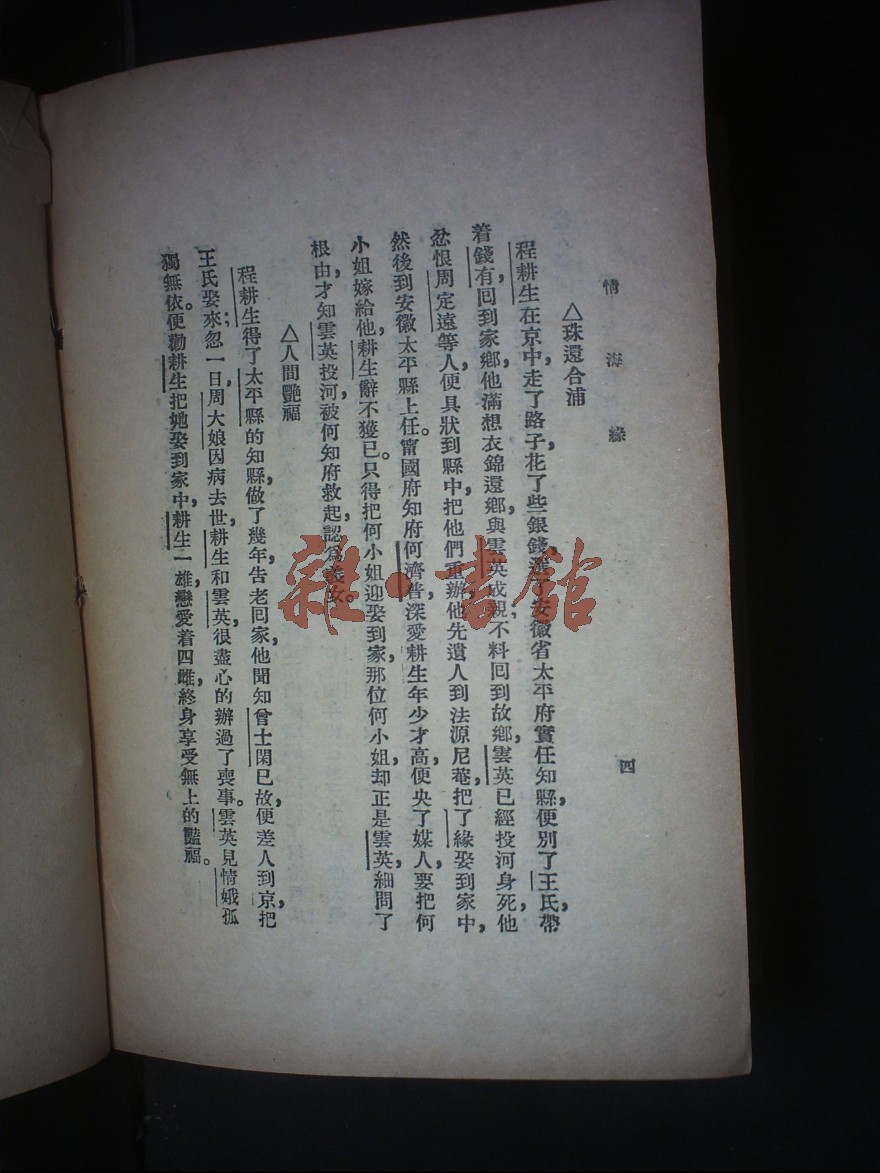 情海緣
四
△珠還合浦
程耕生在京中,走了路子,花了些銀錢,選了安徽省太平府實任知縣,便別了王氏,帶
着錢有回到家鄉,他滿想衣錦還鄉,與雲英成親;不料回到故鄉,雲英已經投河身死,他
忿恨周定遠等人,便具狀到縣中,把他們重辦,他先遣人到法源尼菴,把了緣娶到家中,
然後到安徽太平縣上任。甯國府知府何濟普深愛耕生年少才高,便央了媒人,要把何
小姐嫁給他,耕生辭不獲已,只得把何小姐迎娶到家,那位何小姐,却正是雲英,細問了
根由,才知雲英投河,被何知府救起,認爲義女。
△人間艷福
程耕生得了太平縣的知縣,做了幾年,告老回家,他聞知曾士閑已故,便差人到京,把
王氏娶來;忽一日,周大娘因病去世,耕生和雲英,很盡心的辦過了喪事。雲英見情娥孤
獨無依,便勸耕生把她娶到家中,耕生一雄,戀愛着四雌,終身享受無上的豔福。
雜·書館